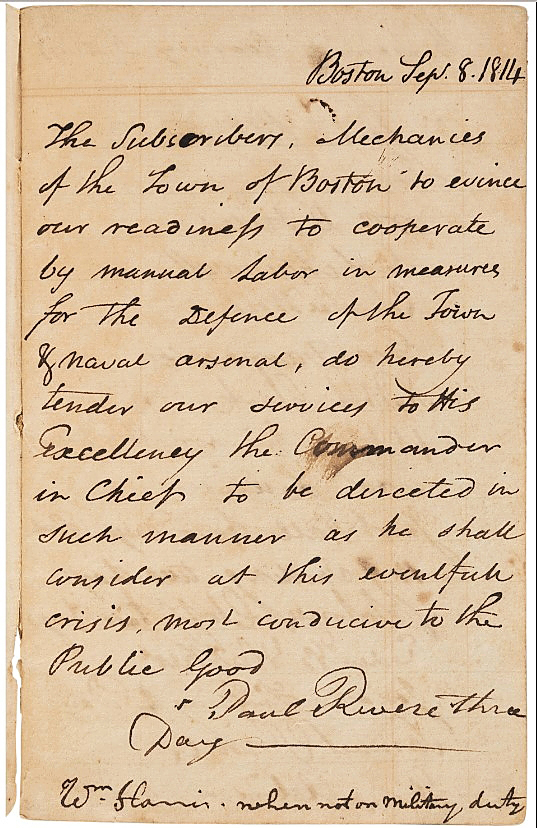 Boston Sep. 8. 1814
The Subscribers, Mechanics
of the Town of Boston to evince
our readiness to cooperate
by manual Labor in measures
for the Defence of the Town
& Naval arsenal, do hereby
tender our services to His
Excellency the Commander
in Chief to be directed in
such manner as he shall
consider at this eventfull
crisis, most conducive to the
Public Good
Paul Revere three
Days
Wm Harris. when not on military duty